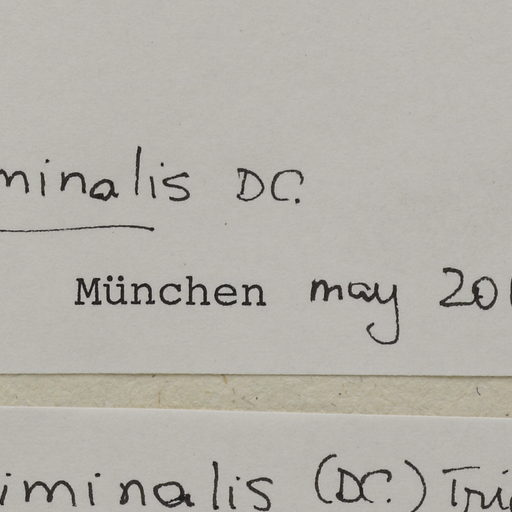 minalis DC.
München may 201
iminalis (DC.) Tri